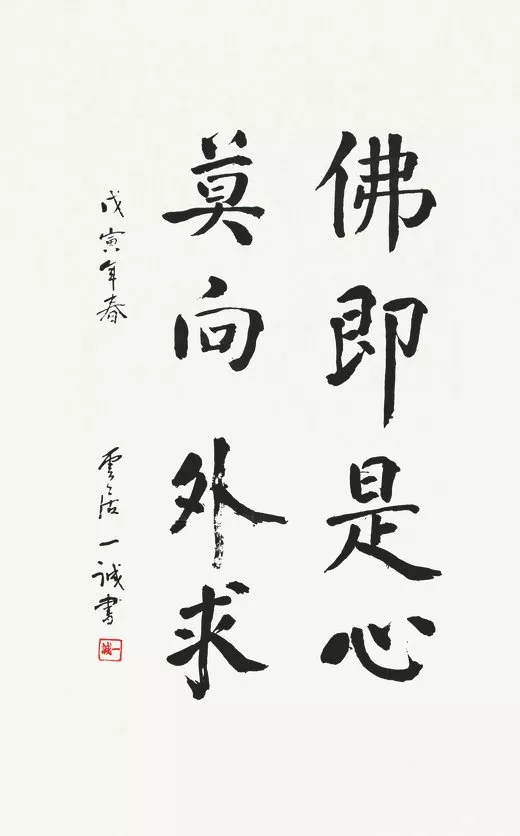 佛即是心
莫向外求
戊寅年春
雲居一诚書
一诚